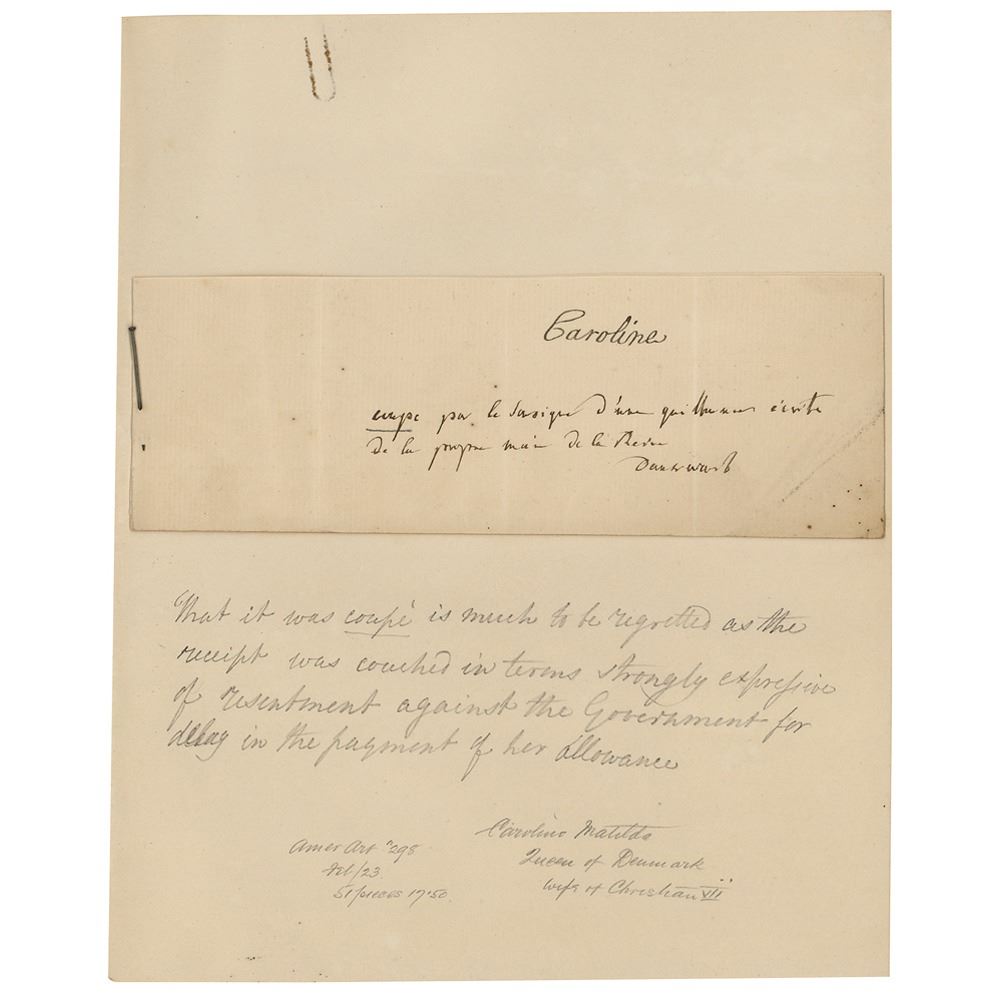 Caroline
coupé par le d'une quittance écrite
de la propre main de la Reine
That it was coupé is much to be regretted as the
receipt was couched in terms strongly expressive
of resentment against the Government for
delay in the payment of her allowance
Caroline Matilda
Queen of Denmark
wife of Christian VII
Amer Art #298
/23
51 pieces 17.50.